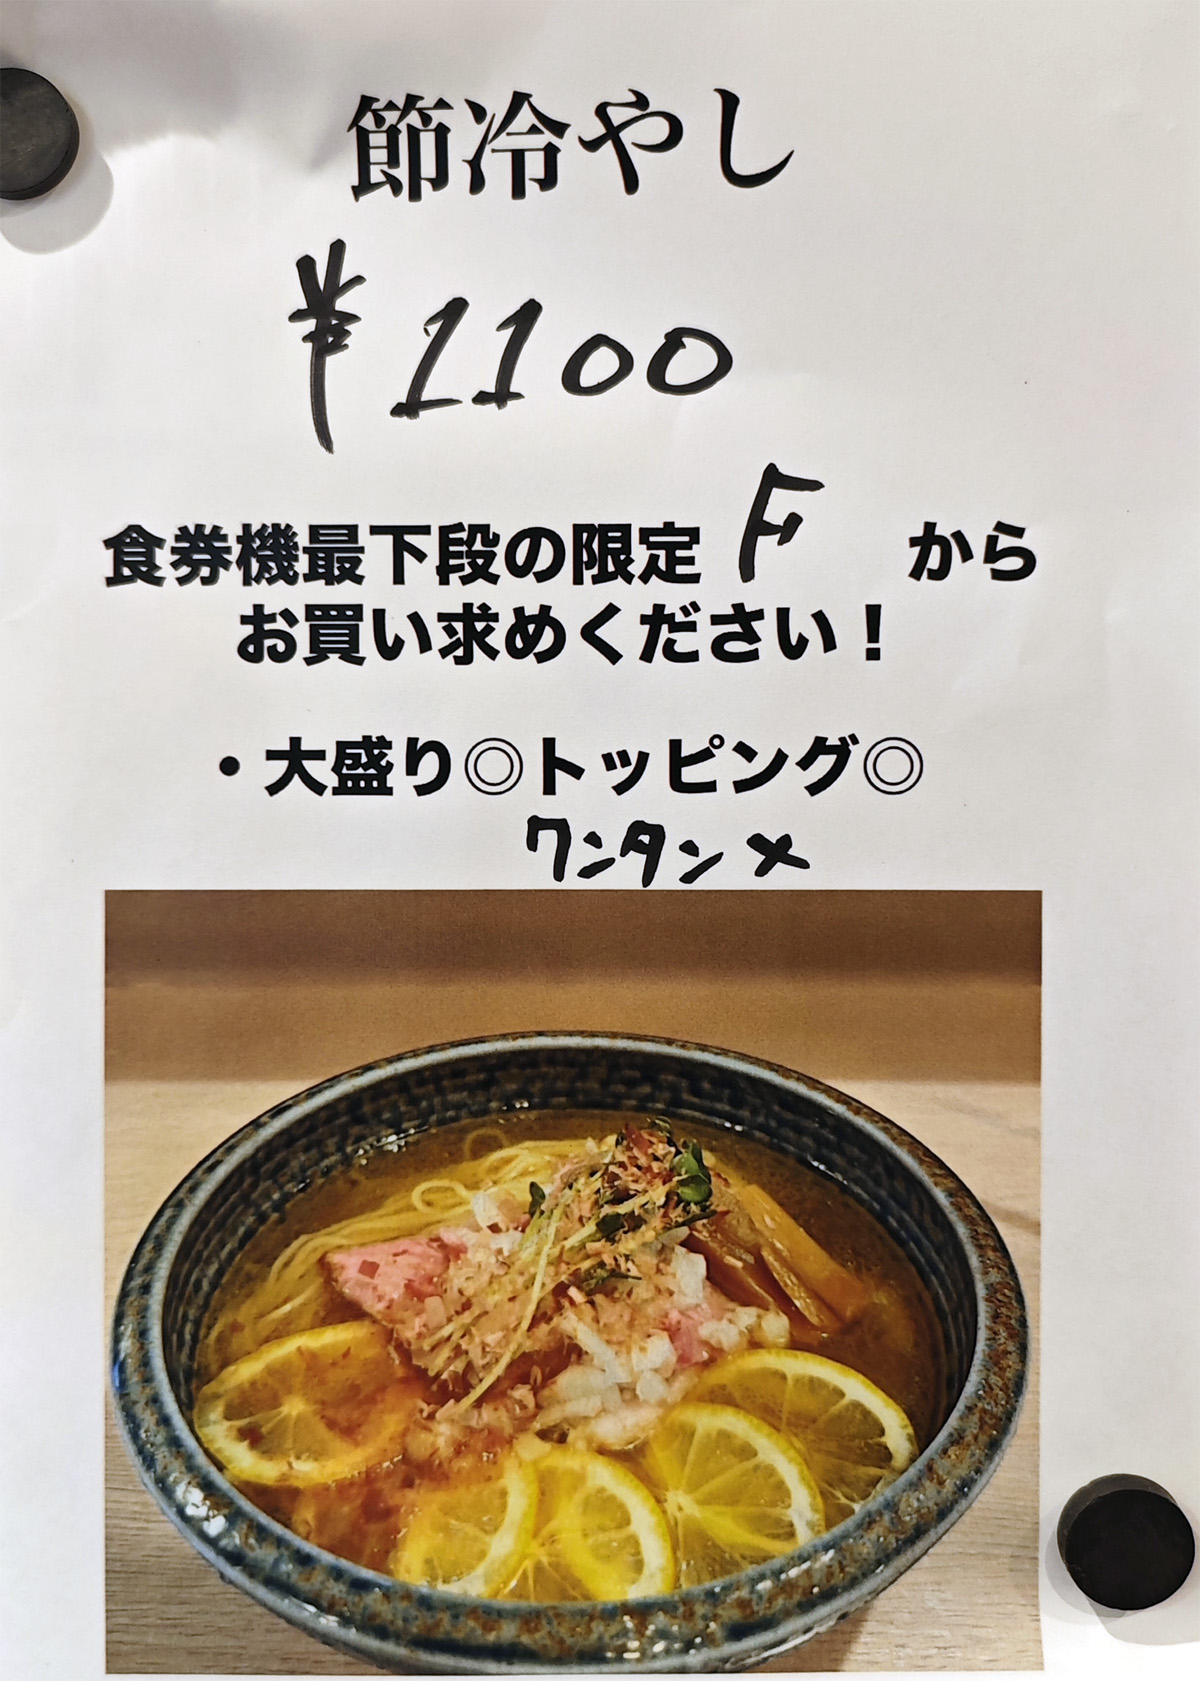 節冷やし
¥1100
食券機最下段の限定 F から
お買い求めください！
・大盛り◎トッピング◎
ワンタン×